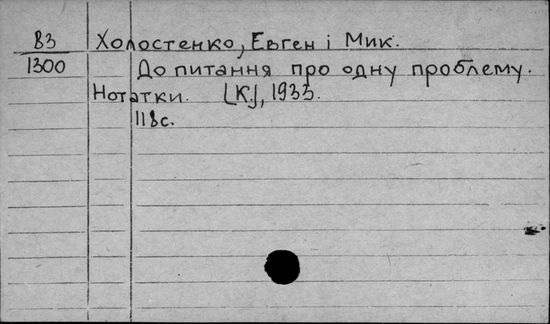 В3 Холостенко, Евген і Мик.
1300 До питання про одну проблему.
Нотатки. [К], 1933.
118с.